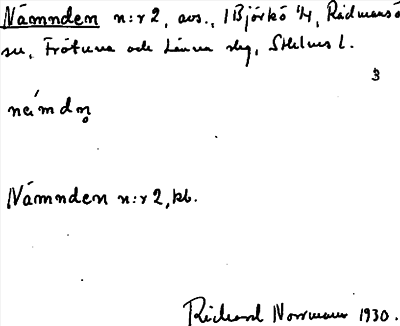 Nämnden n:r 2, avs., 1 Björkö 1/4, Rådmansö
sn, Frötuna och Länna slg, Sthlms l.
3
nämdn̥
Nämnden n:r 2, kb.
Richard Norrman 1930.